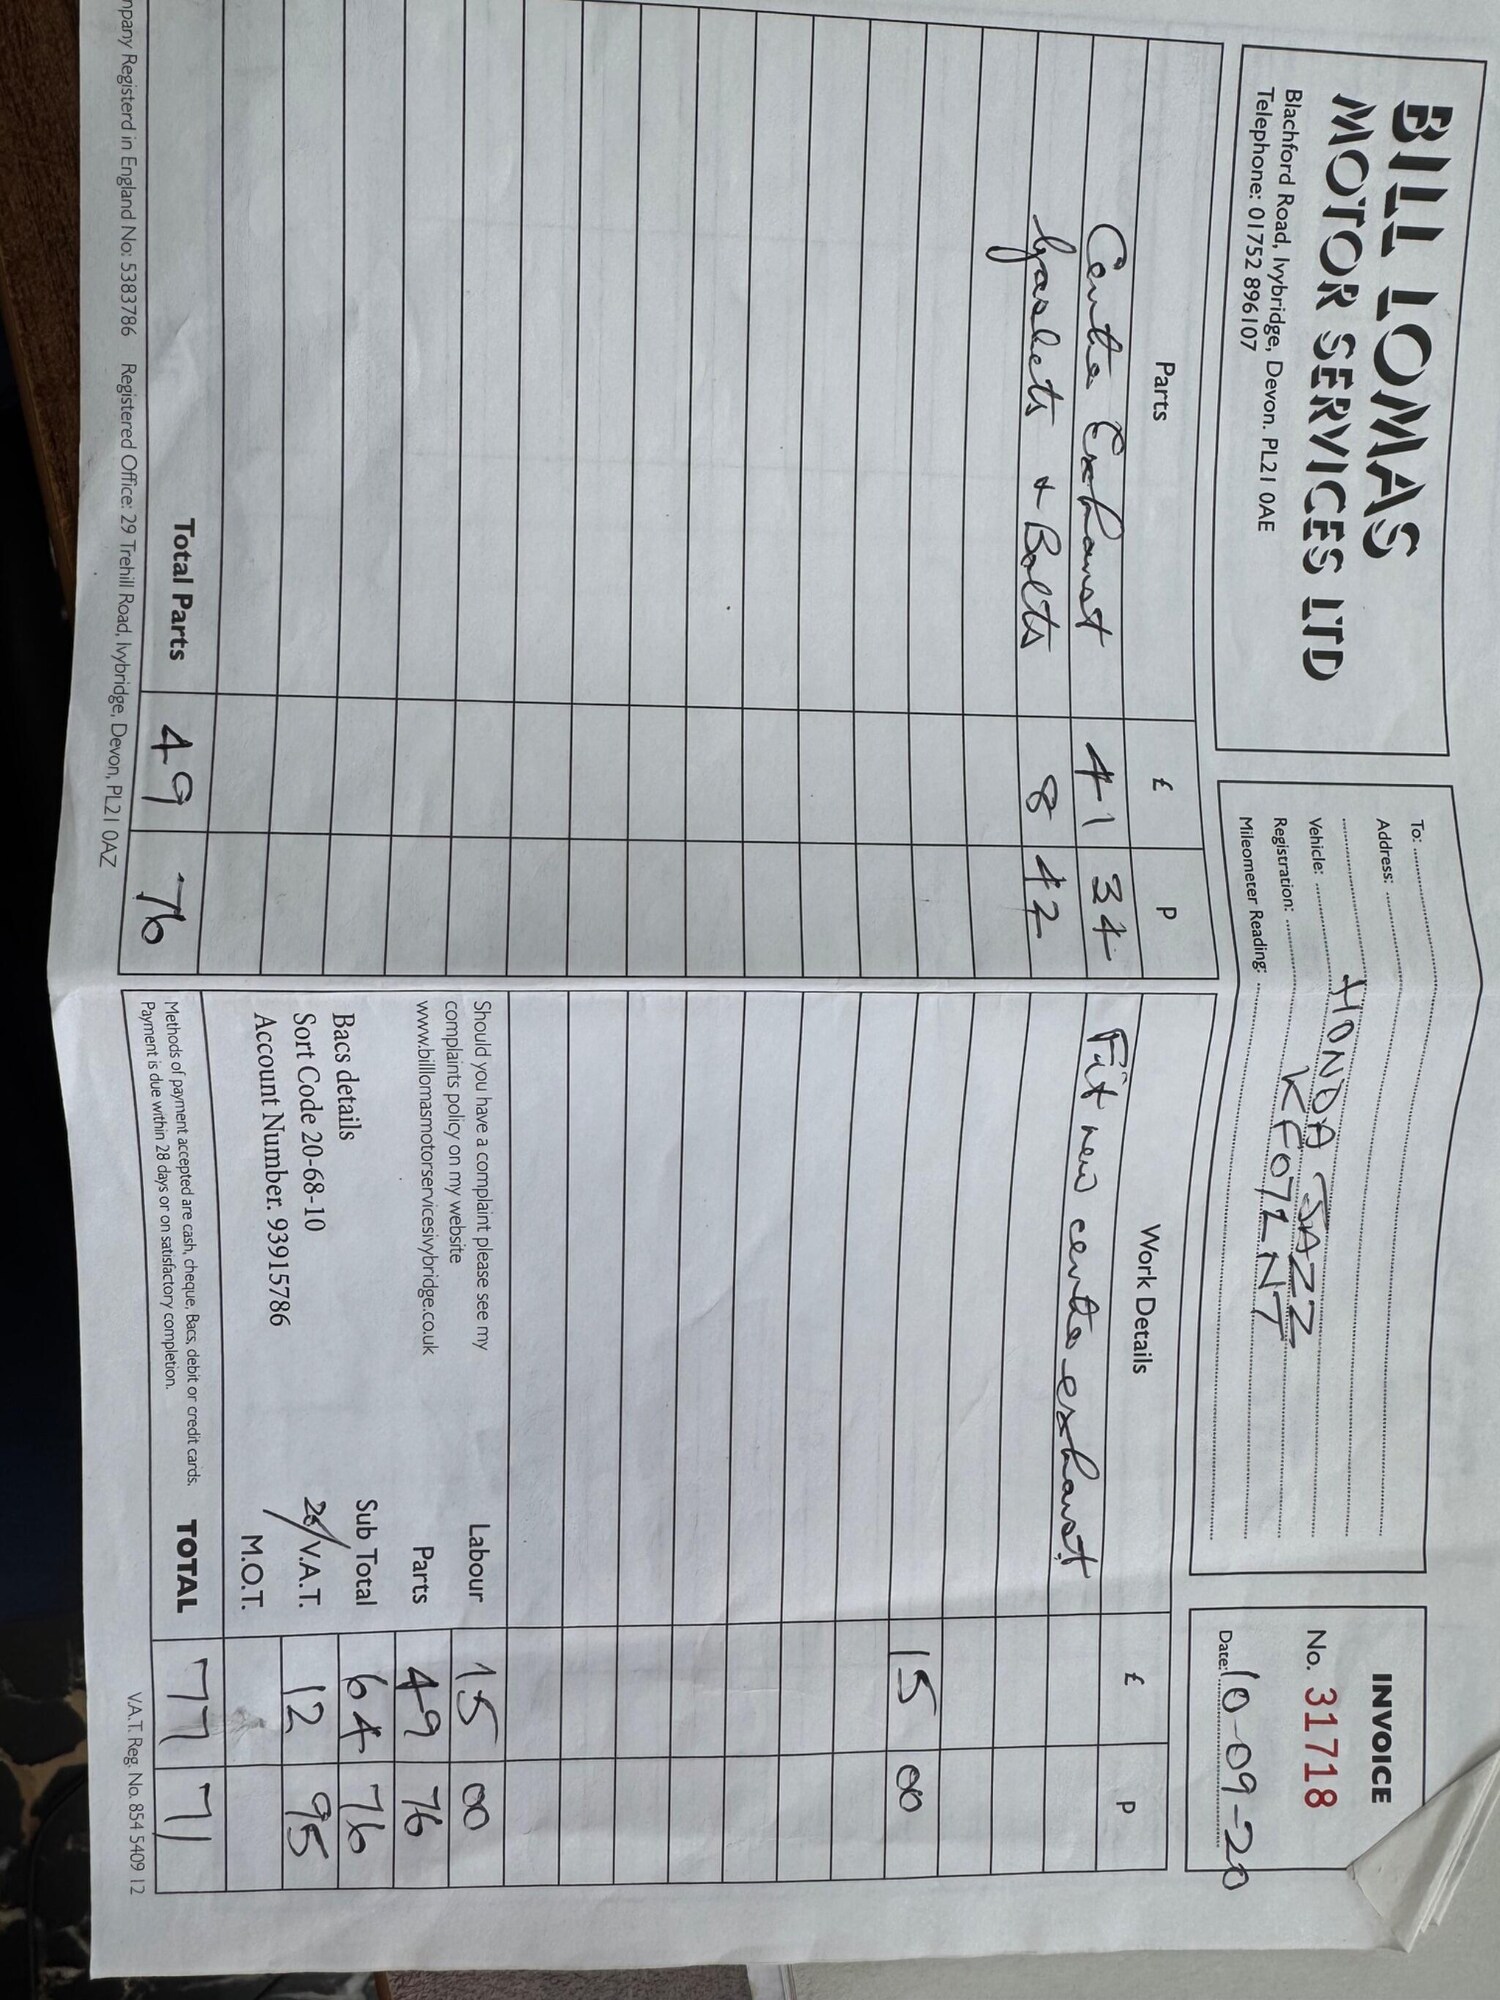 BILL LOMAS
MOTOR SERVICES LTD
Blachford Road, Ivybridge, Devon. PL21 0AE
Telephone: 01752 896107
To:
Address:
Vehicle: HONDA JAZZ
Registration: KF07LNT
Mileometer Reading:
INVOICE
No. 31718
Date: 10-09-20
Parts £ P
Centre Exhaust 41 34
Gaskets + Bolts 8 42
Total Parts 49 76
Work Details £ P
Fit new centre exhaust
15 00
Should you have a complaint please see my
complaints policy on my website
www.billlomasmotorservicesivybridge.co.uk
Bacs details
Sort Code 20-68-10
Account Number. 93915786
Labour 15 00
Parts 49 76
Sub Total 64 76
V.A.T. 12 95
M.O.T.
Methods of payment accepted are cash, cheque, Bacs, debit or credit cards.
Payment is due within 28 days or on satisfactory completion.
TOTAL 77 71
mpany Registerd in England No: 5383786 Registered Office: 29 Trehill Road, Ivybridge, Devon, PL21 0AZ
V.A.T. Reg. No. 854 5409 12